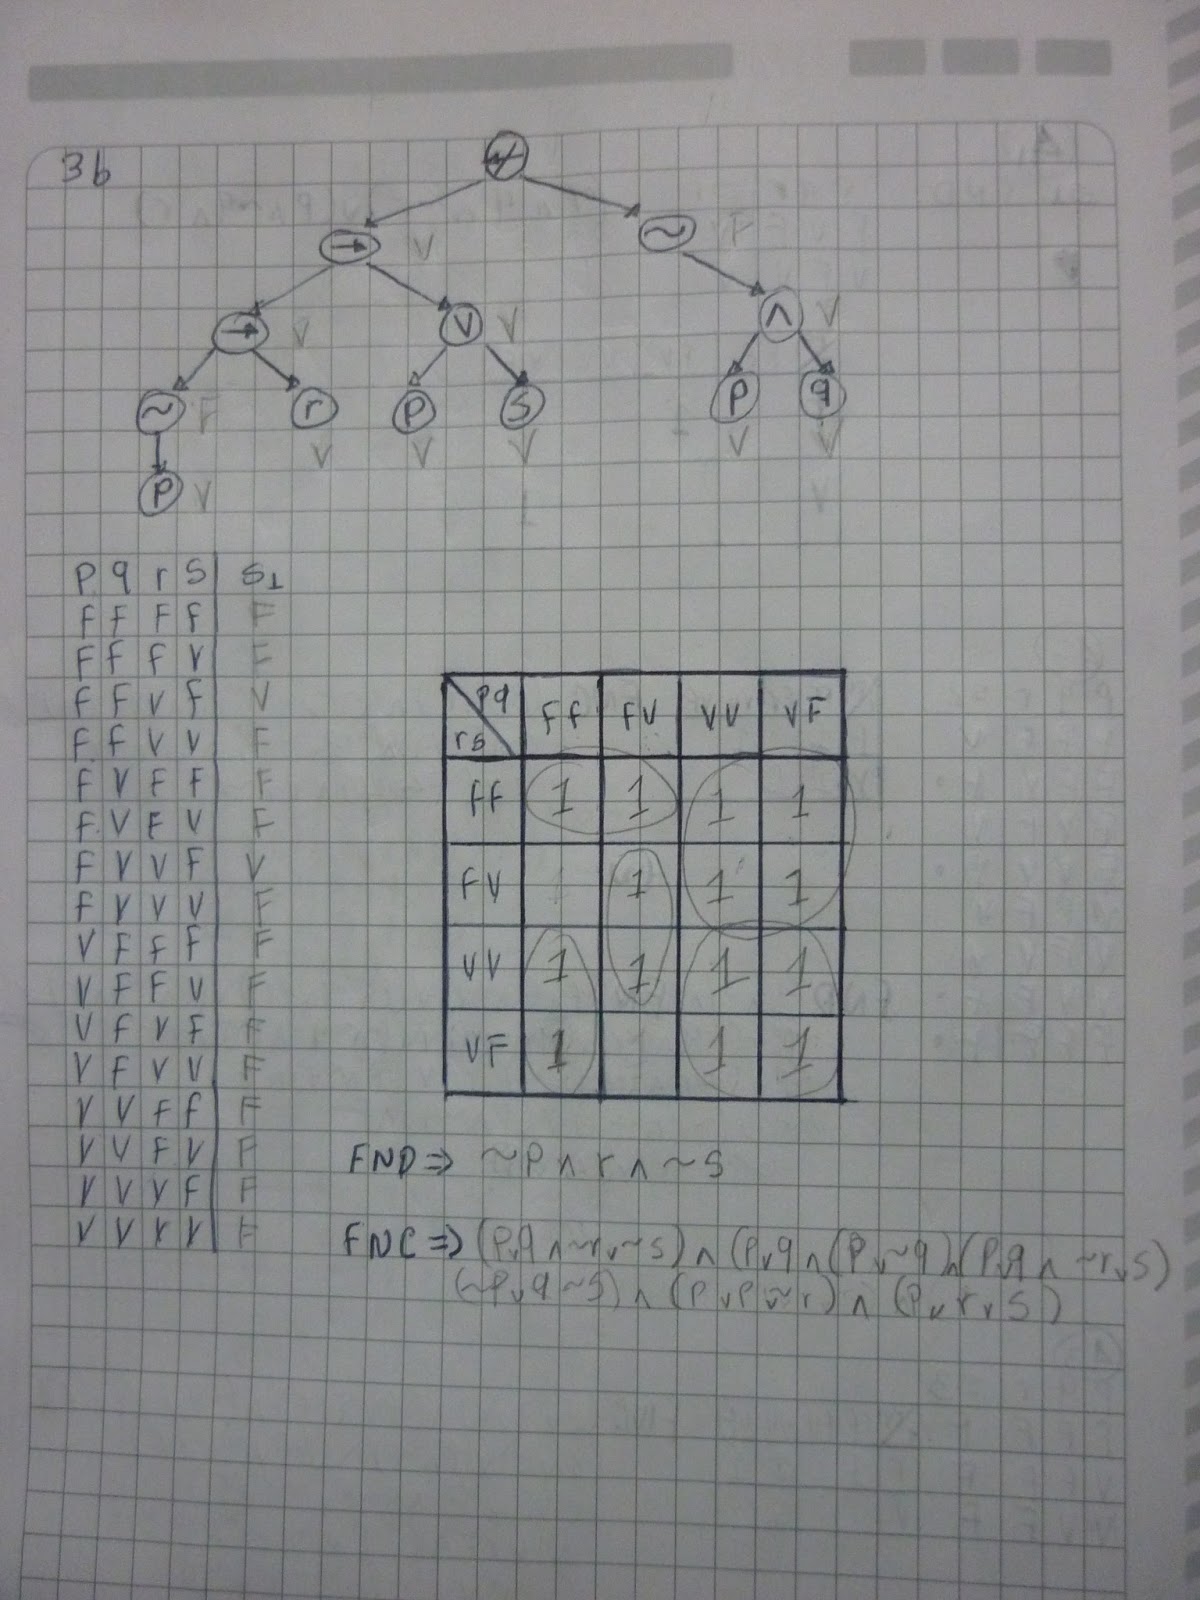 3b
→ V ~ F
→ V v V ∧ V
~ F r p s p q
V V V V V
p V
V
p q r s S1
F F F F F
F F F V F
F F V F V
F F V V F
F V F F F
F V F V F
F V V F V
F V V V F
V F F F F
V F F V F
V F V F F
V F V V F
V V F F F
V V F V F
V V V F F
V V V V F
pq FF FV VV VF
rs
FF 1 1 1 1
FV 1 1 1
VV 1 1 1 1
VF 1 1 1
FND ⇒ ~P ∧ r ∧ ~s
FNC ⇒ (P∨q ∧ ~r ∨ ~s) ∧ (P∨q ∧ (P ∨ ~q) ∧ (P∨q ∧ ~r ∨ s)
(~P∨q ~s) ∧ (P∨P∨~r) ∧ (P∨r∨s)